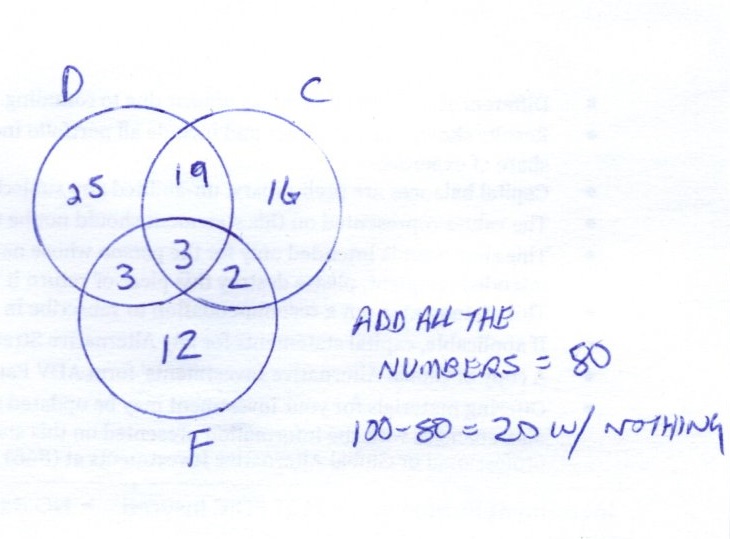 D
C
25
19
16
3
3
2
12
F
ADD ALL THE
NUMBERS = 80
100-80 = 20 W/ NOTHING